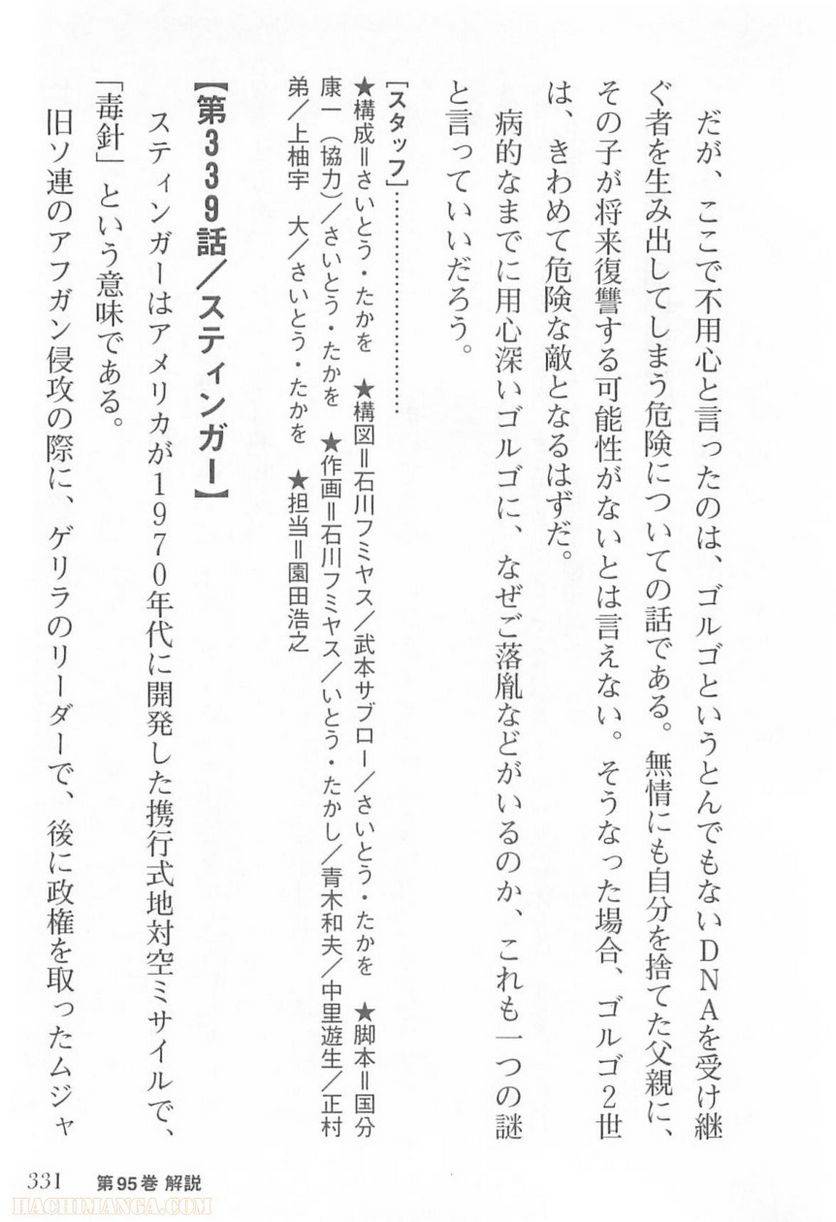 だが、ここで不用心と言ったのは、ゴルゴというとんでもないDNAを受け継
ぐ者を生み出してしまう危険についての話である。無情にも自分を捨てた父親に、
その子が将来復讐する可能性がないとは言えない。そうなった場合、ゴルゴ2世
は、きわめて危険な敵となるはずだ。
病的なまでに用心深いゴルゴに、なぜご落胤などがいるのか、これも一つの謎
と言っていいだろう。
[スタッフ]…………………………
★構成＝さいとう・たかを　★構図＝石川フミヤス／武本サブロー／さいとう・たかを　★脚本＝国分
康一（協力）／さいとう・たかを　★作画＝石川フミヤス／いとう・たかし／青木和夫／中里遊生／正村
弟／上柚宇　大／さいとう・たかを　★担当＝園田浩之
【第339話／スティンガー】
スティンガーはアメリカが1970年代に開発した携行式地対空ミサイルで、
「毒針」という意味である。
旧ソ連のアフガン侵攻の際に、ゲリラのリーダーで、後に政権を取ったムジャ
331　第95巻 解説
HACHIMANGA.COM